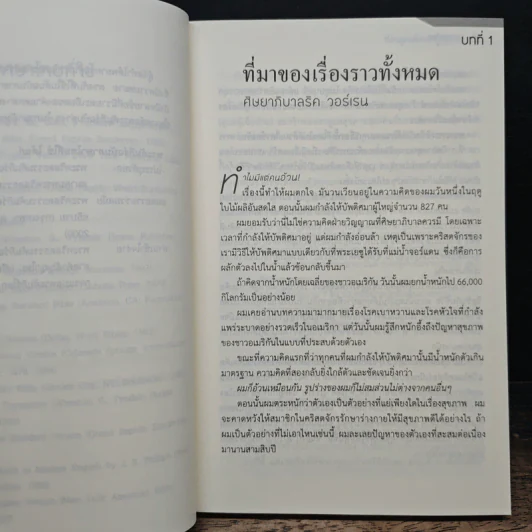 บทที่ 1
ที่มาของเรื่องราวทั้งหมด
ศิษยาภิบาลริค วอร์เรน
ทำไมมีแต่คนอ้วน!
เรื่องนี้ทำให้ผมตกใจ มันวนเวียนอยู่ในความคิดของผมวันหนึ่งในฤดู
ใบไม้ผลิอันสดใส ตอนนั้นผมกำลังให้บัพติศมาผู้ใหญ่จำนวน 827 คน
ผมยอมรับว่านี่ไม่ใช่ความคิดฝ่ายวิญญาณที่ศิษยาภิบาลควรมี โดยเฉพาะ
เวลาที่กำลังให้บัพติศมาอยู่ แต่ผมกำลังอ่อนล้า เหตุเป็นเพราะคริสตจักรของ
เรามีวิธีให้บัพติศมาแบบเดียวกับที่พระเยซูได้รับที่แม่น้ำจอร์แดน ซึ่งก็คือการ
ผลักตัวลงไปในน้ำแล้วช้อนกลับขึ้นมา
ถ้าคิดจากน้ำหนักโดยเฉลี่ยของชาวอเมริกัน วันนั้นผมยกน้ำหนักไป 66,000
กิโลกรัมเป็นอย่างน้อย
ผมเคยอ่านบทความมามากมายเรื่องโรคเบาหวานและโรคหัวใจที่กำลัง
แพร่ระบาดอย่างรวดเร็วในอเมริกา แต่วันนั้นผมรู้สึกหนักอึ้งถึงปัญหาสุขภาพ
ของชาวอเมริกันในแบบที่ประสบด้วยตัวเอง
ขณะที่ความคิดแรกที่ว่าทุกคนที่ผมกำลังให้บัพติศมานั้นมีน้ำหนักตัวเกิน
มาตรฐาน ความคิดที่สองกลับยิ่งใกล้ตัวและชัดเจนยิ่งกว่า
ผมก็อ้วนเหมือนกัน รูปร่างของผมก็ไม่สมส่วนไม่ต่างจากคนอื่นๆ
ตอนนั้นผมตระหนักว่าตัวเองเป็นตัวอย่างที่แย่เพียงใดในเรื่องสุขภาพ ผม
จะคาดหวังให้สมาชิกในคริสตจักรรักษาร่างกายให้มีสุขภาพดีได้อย่างไร ถ้า
ผมเป็นตัวอย่างที่ไม่เอาไหนเช่นนี้ ผมละเลยปัญหาของตัวเองที่สะสมต่อเนื่อง
มานานสามสิบปี